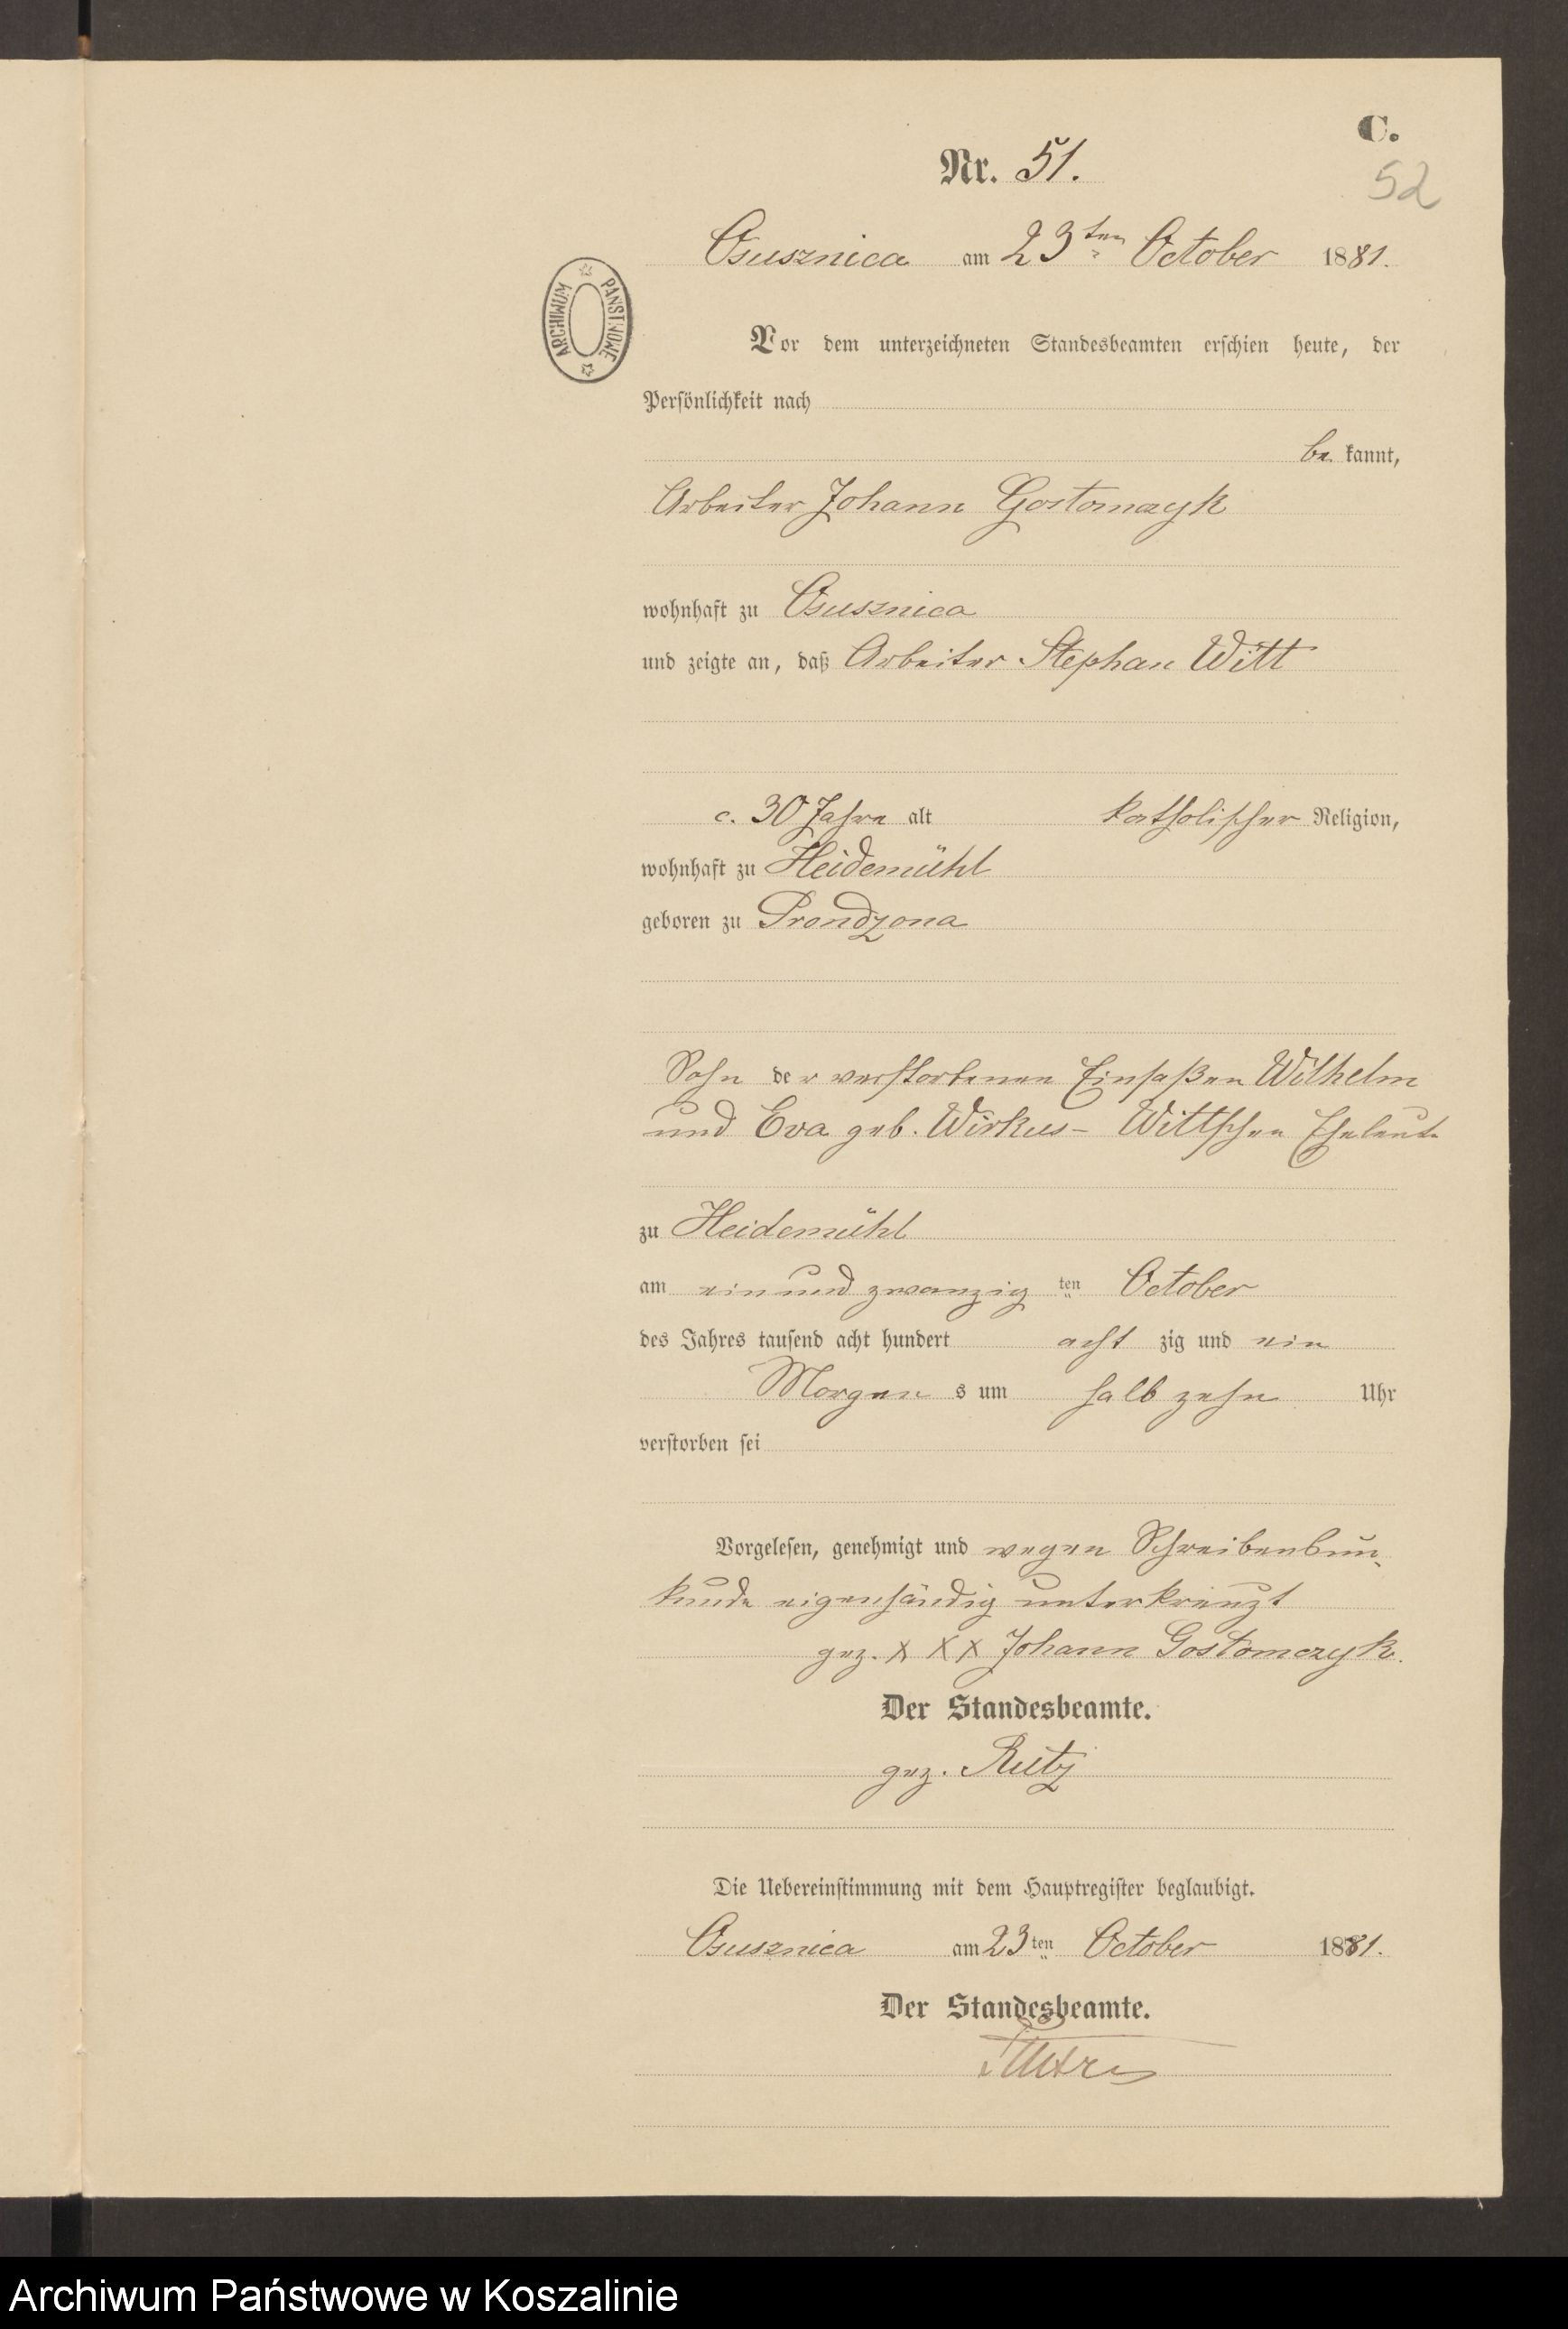 C.
Nr. 51.
52
Osusznica am 23ten October 1881.
ARCHIWUM PAŃSTWOWE
Vor dem unterzeichneten Standesbeamten erschien heute, der
Persönlichkeit nach
be kannt,
Arbeiter Johann Gostomczyk
wohnhaft zu Osusznica
und zeigte an, daß Arbeiter Stephan Witt
c. 30 Jahre alt katholischer Religion,
wohnhaft zu Heidemühl
geboren zu Prondzona
Sohn der verstorbenen Einsaßen Wilhelm
und Eva geb. Wirkus- Wittschen Eheleute
zu Heidemühl
am ein und zwanzig ten October
des Jahres tausend acht hundert acht zig und ein
Morgen s um halb zehn Uhr
verstorben sei
Vorgelesen, genehmigt und wegen Schreibensun-
kunde eigenhändig unterkreuzt
gez. X X X Johann Gostomczyk.
Der Standesbeamte.
gez. Rutz
Die Uebereinstimmung mit dem Hauptregister beglaubigt.
Osusznica am 23 ten October 1881.
Der Standesbeamte.
Archiwum Państwowe w Koszalinie